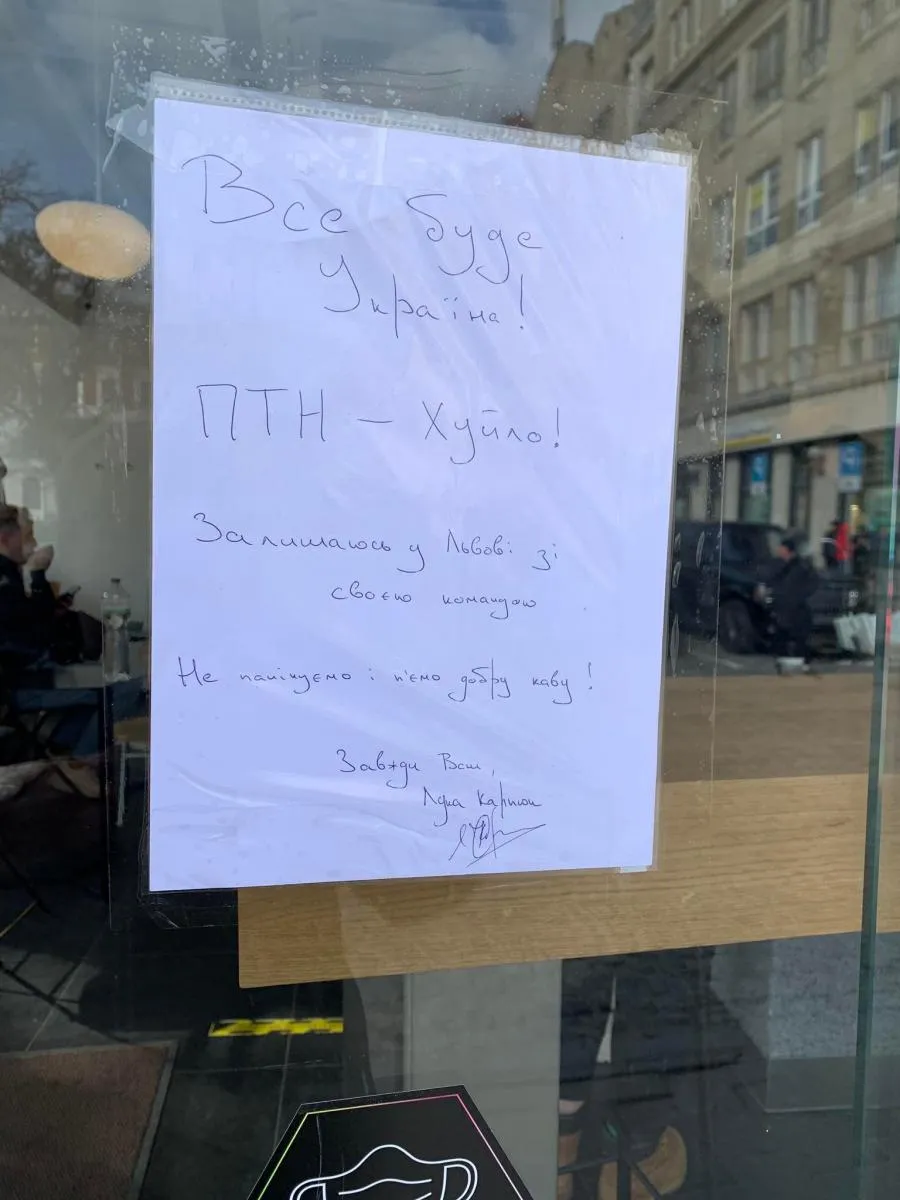 Все буде
Україна!
ПТН — Хуйло!
Залишаюсь у Львові зі
своєю командою
Не панікуємо і п'ємо добру каву!
Завжди Ваш,